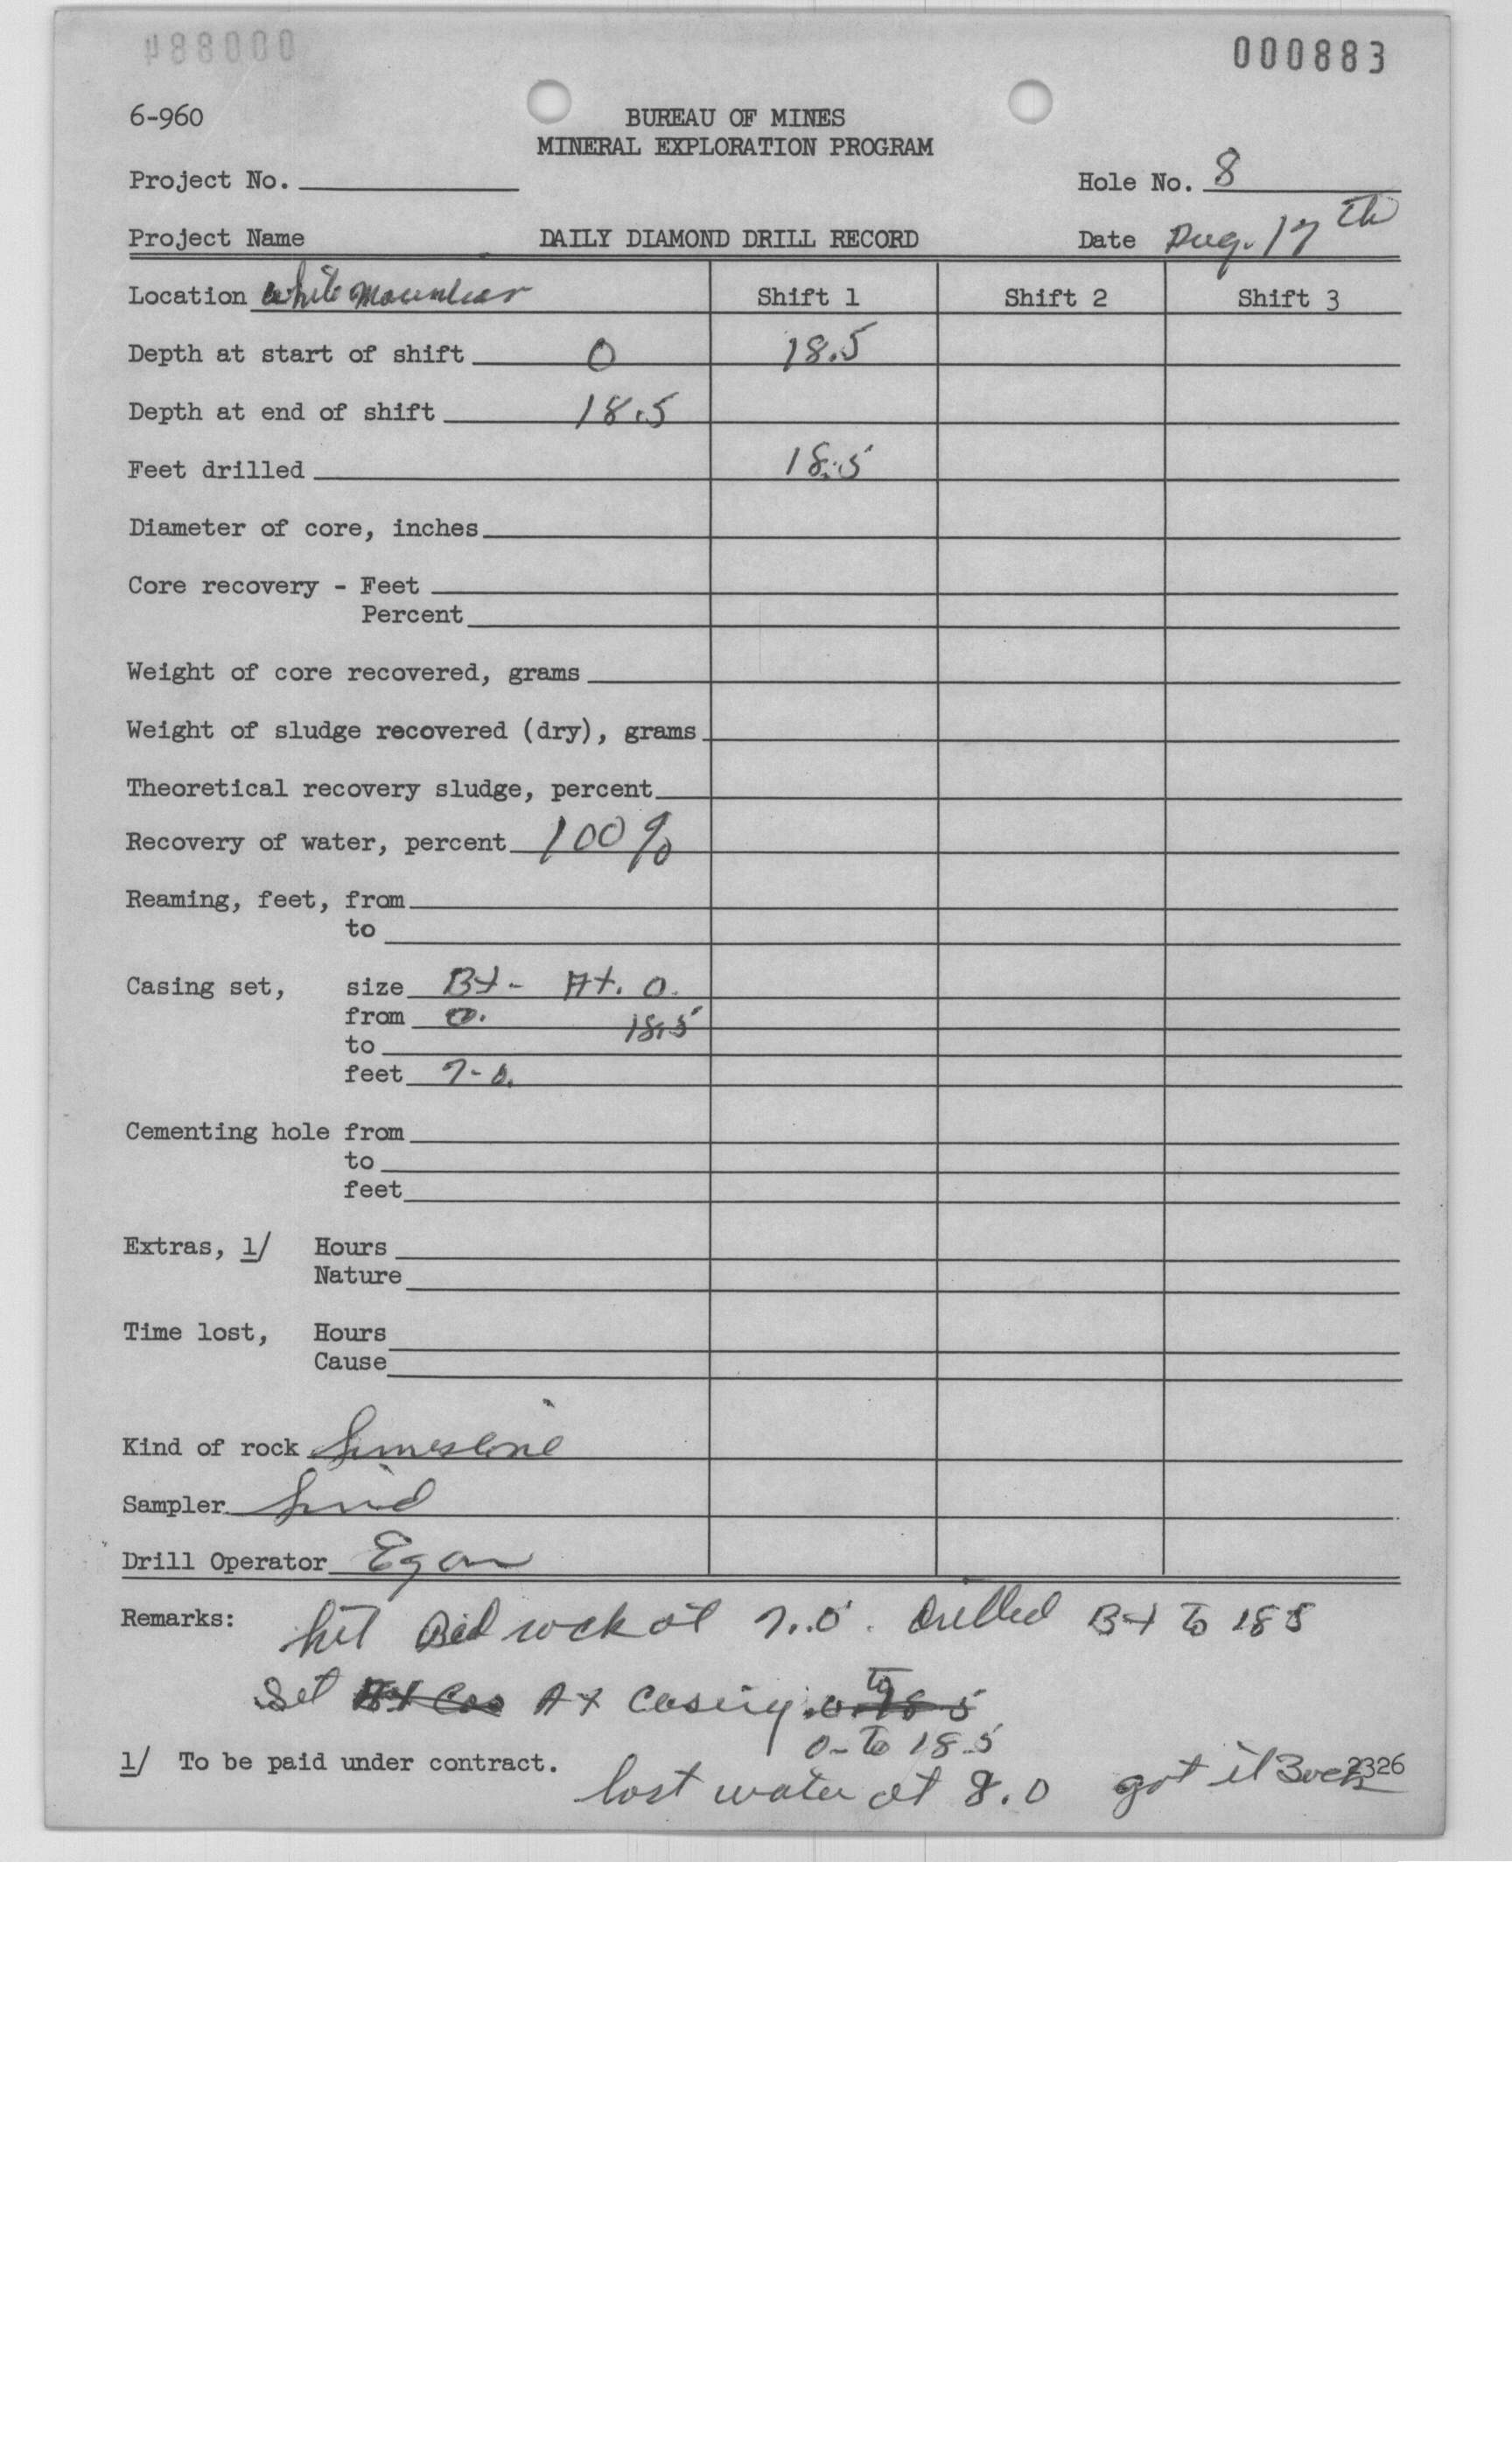 000884 000883
6-960 BUREAU OF MINES
MINERAL EXPLORATION PROGRAM
Project No. Hole No. 8
Project Name DAILY DIAMOND DRILL RECORD Date Aug. 17th
Location White Mountain Shift 1 Shift 2 Shift 3
Depth at start of shift 0 18.5
Depth at end of shift 18.5
Feet drilled 18.5
Diameter of core, inches
Core recovery - Feet
Percent
Weight of core recovered, grams
Weight of sludge recovered (dry), grams
Theoretical recovery sludge, percent
Recovery of water, percent 100%
Reaming, feet, from
to
Casing set, size Bx - Ax. 0.
from 0. 18.5
to
feet 7-0.
Cementing hole from
to
feet
Extras, 1/ Hours
Nature
Time lost, Hours
Cause
Kind of rock Limestone
Sampler
Drill Operator Egan
Remarks: hit Bed rock at 7.0. Drilled Bx to 185
Set Ax casing 0 to 18 5
0- to 18.5
1/ To be paid under contract.
lost water at 8.0 got it Back 2326